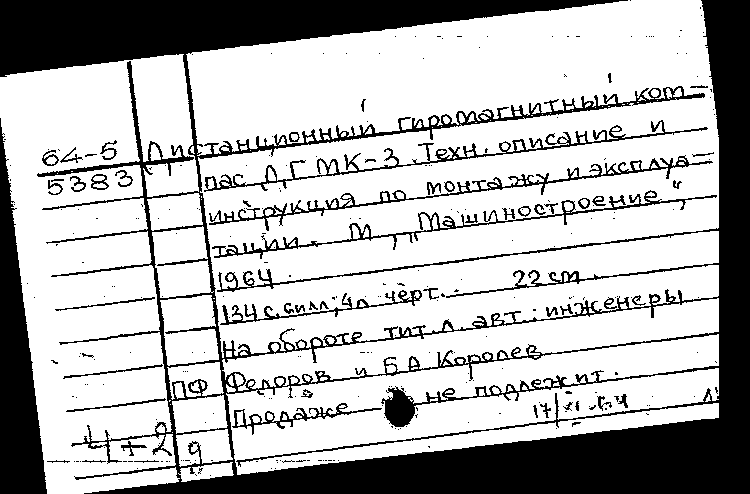 64-5 Дистанционный гиромагнитный ком-
5383 пас ДГМК-3. Техн. описание и
инструкция по монтажу и эксплуа-
тации. М, „Машиностроение",
1964.
134 с. с илл; 4 л черт. 22 см.
На обороте тит. л. авт.: инженеры
ПФ Федоров и БА Королев
Продаже не подлежит.
4+2 д 17/XI-64